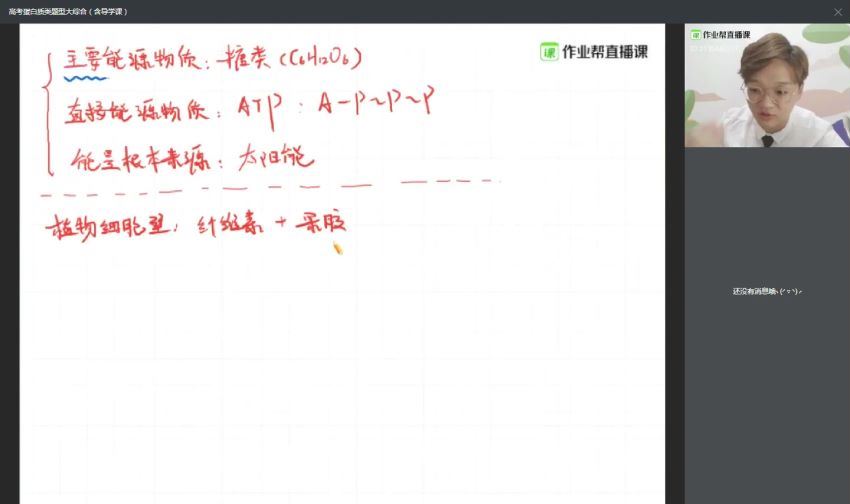 高考蛋白质类题型大综合（含导学课）
主要能源物质：糖类（C6H12O6）
直接能源物质：ATP：A-P~P~P
能量根本来源：太阳能
植物细胞壁：纤维素 + 果胶
课 作业帮直播课
课 作业帮直播课
还没有消息哦~